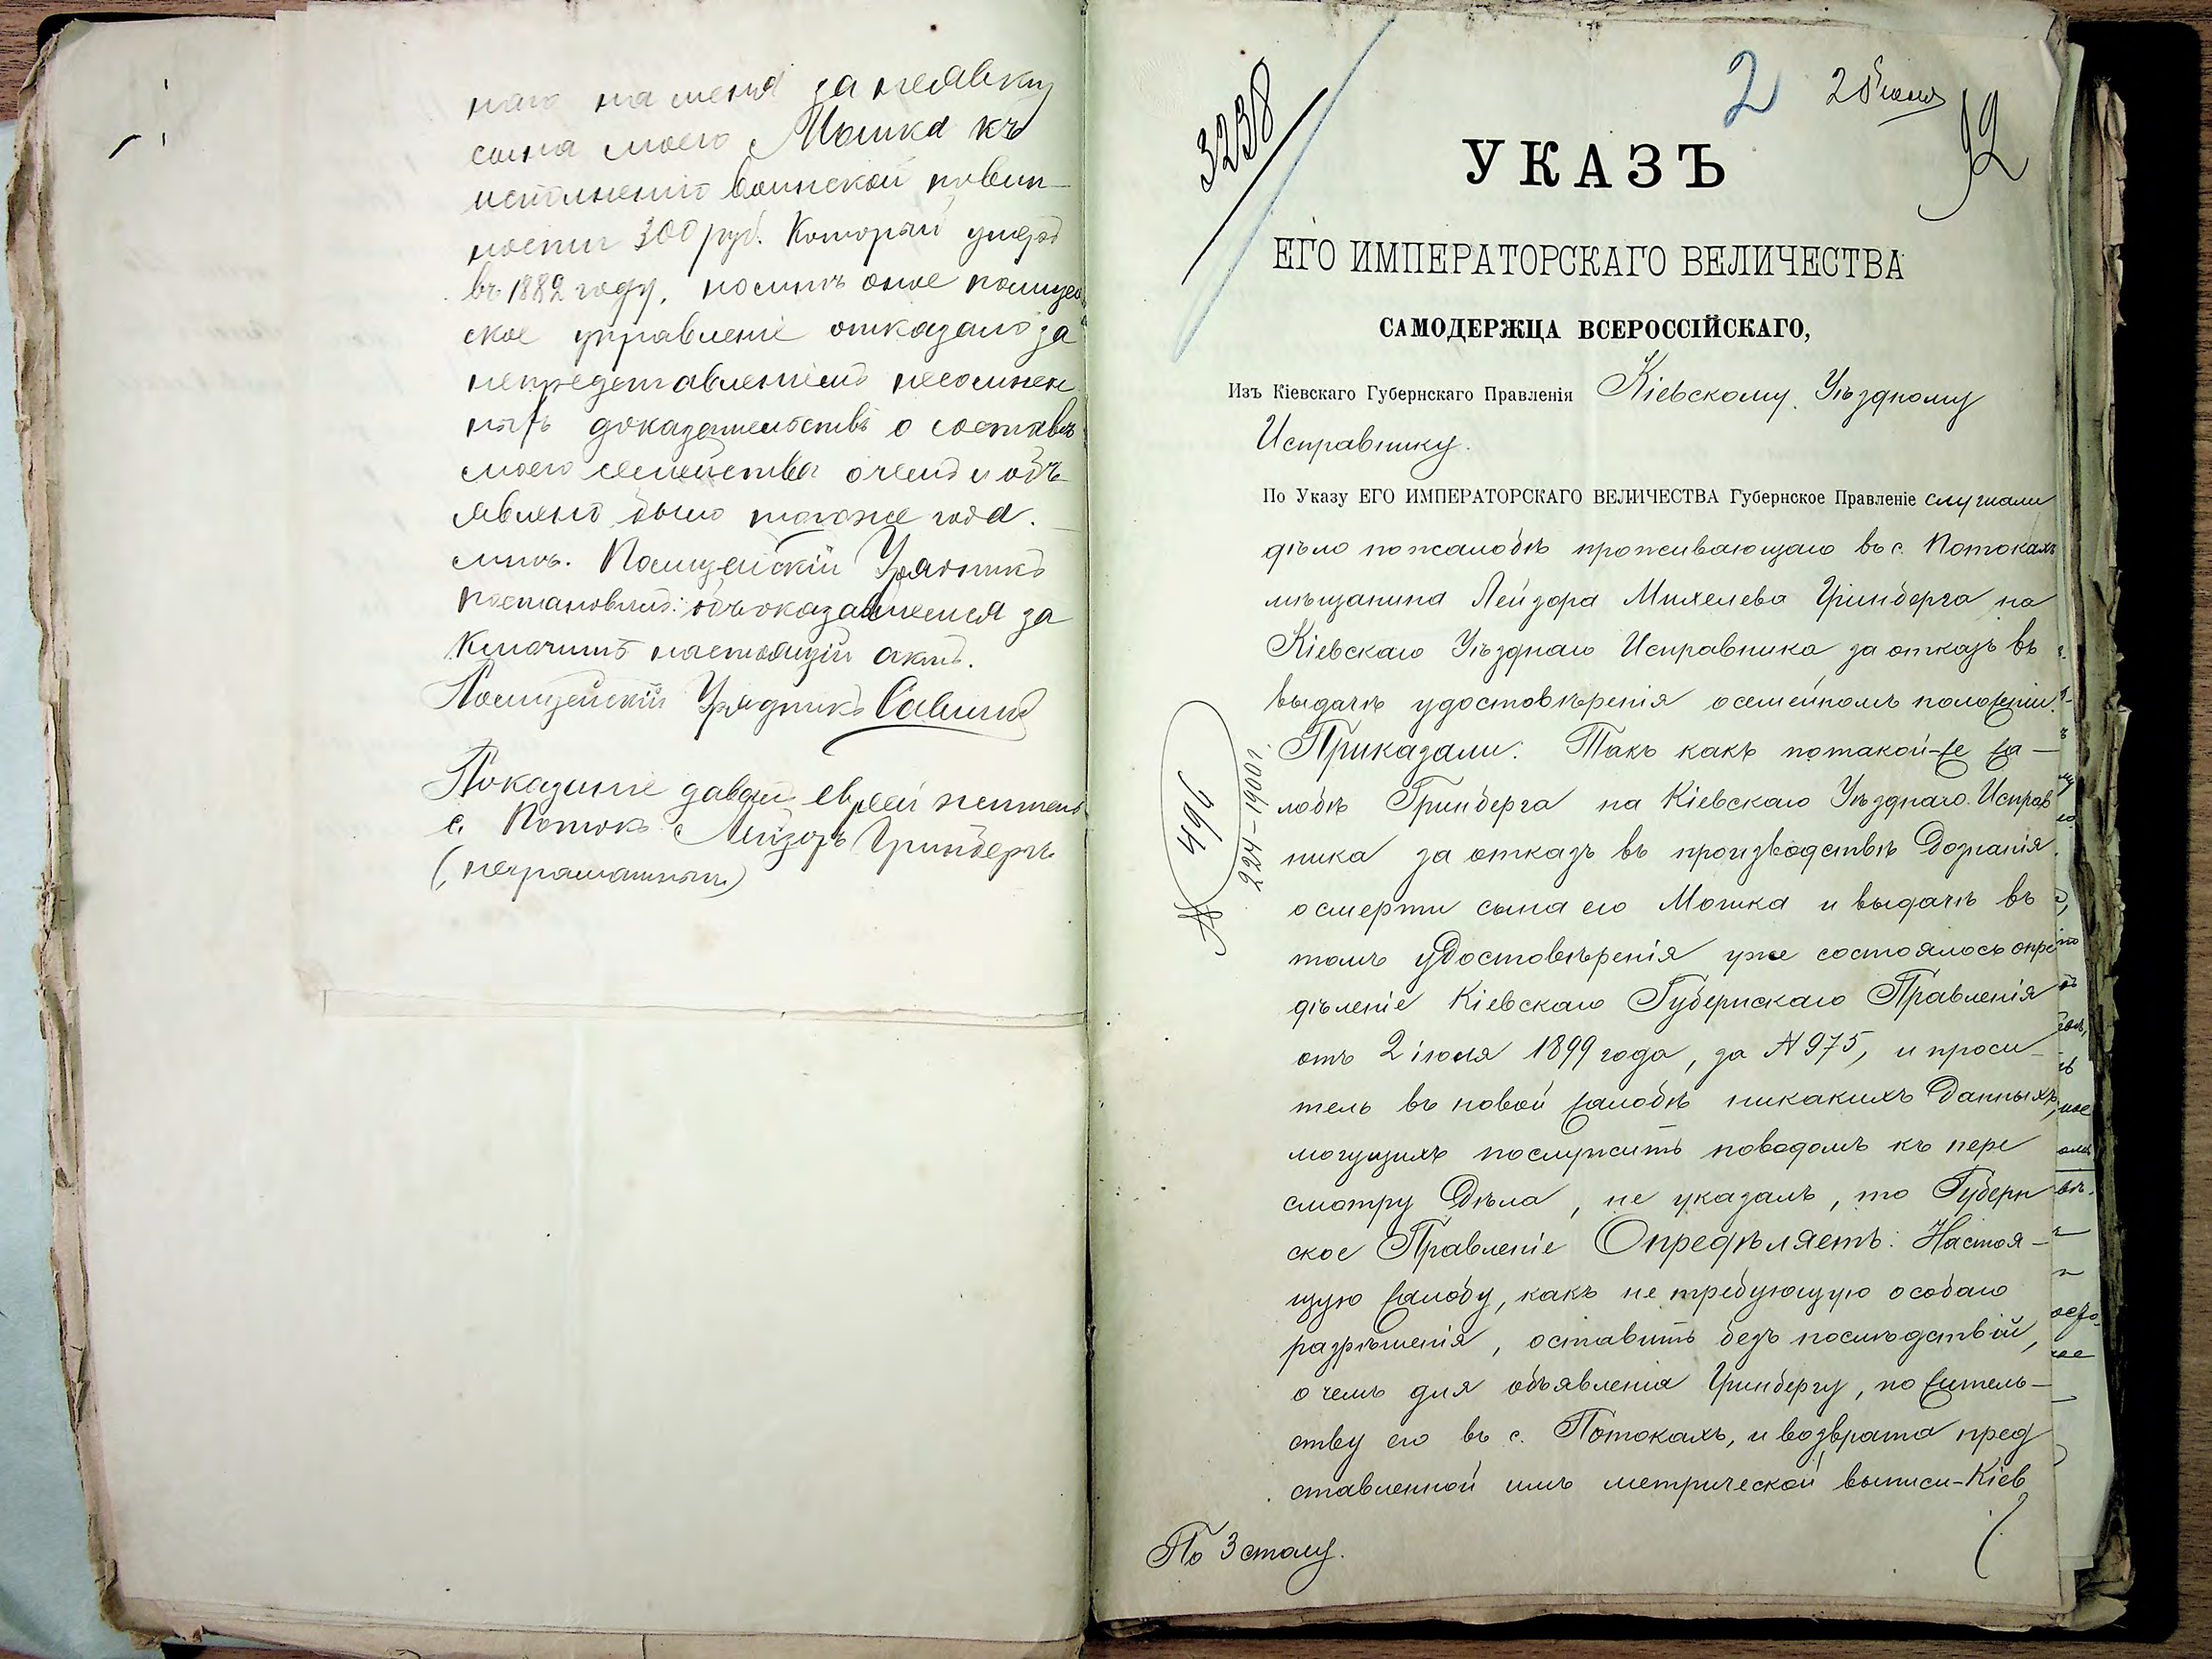 наго на меня за неявку
сына моего Мошка къ
исполненію воинской повин-
ности 300 руб. Который умеръ
въ 1882 году,
ское управленіе отказало за
непредставленіемъ несомнен
ныхъ доказательствъ о составѣ
моего семейства о чемъ и объ-
явлено было того же года.
Полицейскій Урядникъ
Постановилъ: объ оказавшемся за
ключить настоящій актъ.
Полицейскій Урядникъ
Показаніе давалъ еврей житель
с. Потокъ Лейзоръ Гринбергъ
(неграмотный)
3238
2
25 іюня
92
УКАЗЪ
ЕГО ИМПЕРАТОРСКАГО ВЕЛИЧЕСТВА
САМОДЕРЖЦА ВСЕРОССІЙСКАГО,
Изъ Кіевскаго Губернскаго Правленія Кіевскому Уѣздному
Исправнику.
По Указу ЕГО ИМПЕРАТОРСКАГО ВЕЛИЧЕСТВА Губернское Правленіе слушали
дѣло по жалобѣ проживающаго въ с. Потокахъ
мѣщанина Лейзора Михелева Гринберга на
Кіевскаго Уѣзднаго Исправника за отказъ въ
выдачѣ удостовѣренія о семейномъ положеніи.
Приказали: Такъ какъ по такой-же жа-
лобѣ Гринберга на Кіевскаго Уѣзднаго Исправ
ника за отказъ въ производствѣ дознанія
о смерти сына его Мошка и выдачѣ въ
томъ удостовѣренія уже состоялось опре
дѣленіе Кіевскаго Губернскаго Правленія
отъ 2 іюля 1899 года, за № 975, и проси-
тель въ новой жалобѣ никакихъ данныхъ,
могущихъ послужить поводомъ къ пере
смотру дѣла, не указалъ, то Губерн
ское Правленіе Опредѣляетъ: Настоя-
щую жалобу, какъ не требующую особаго
разрѣшенія, оставить безъ послѣдствій,
о чемъ для объявленія Гринбергу, по житель-
ству его въ с. Потокахъ, и возврата пред
ставленной имъ метрической выписи-Кіев
По 3 столу.
№ 496
224-1900 г.